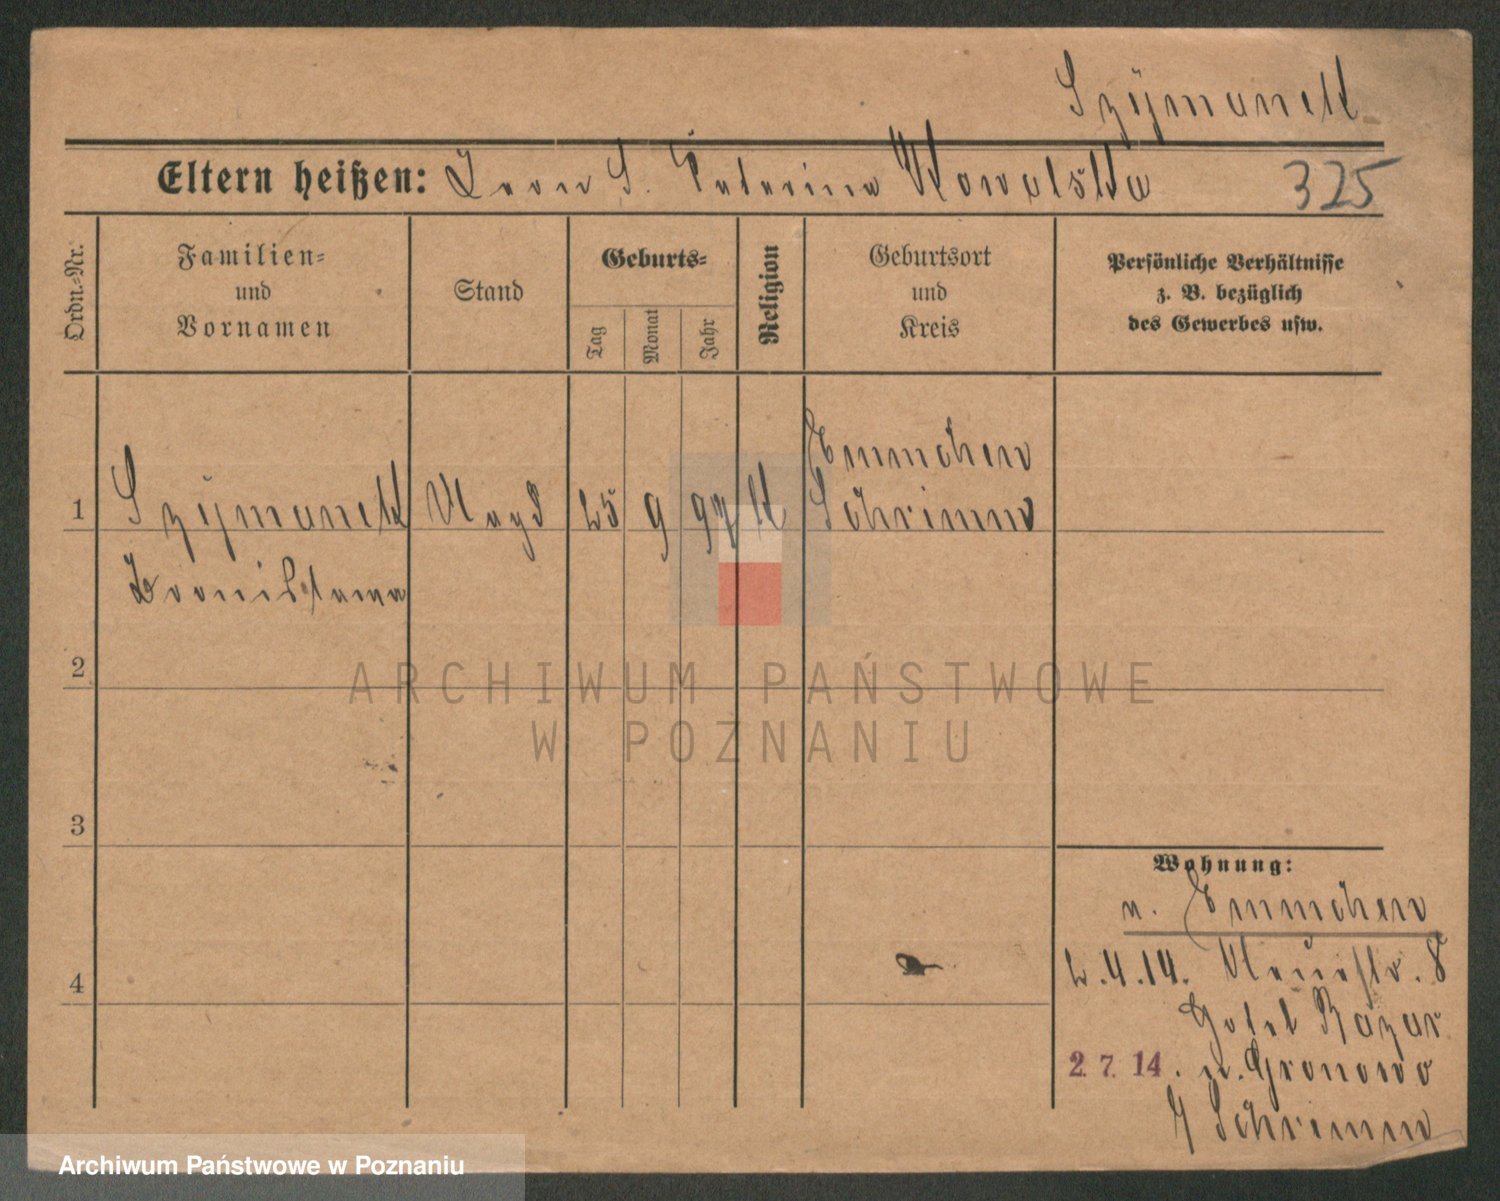 Szÿmanek
Eltern heißen: Leon S. Katarina Kowalska 325
Ordn.-Nr.
Familien-
und
Vornamen
Stand
Geburts-
Tag
Monat
Jahr
Religion
Geburtsort
und
Kreis
Persönliche Verhältnisse
z. B. bezüglich
des Gewerbes usw.
Emmchen
1 Szÿmanek Magd 25 9 97 K Schrimm
2
ARCHIWUM PAŃSTWOWE
W POZNANIU
3
Wohnung:
n. Emmchen
2.4.14. Neuestr. 8
Hotel Bazar
4
2. 7. 14. n. Gronowo
Schrimm
Archiwum Państwowe w Poznaniu